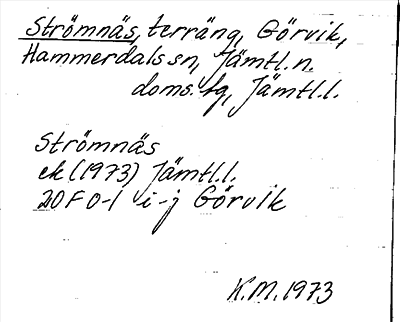 Strömnäs, terräng, Görvik,
Hammerdals sn, Jämtl. n.
doms. fg, Jämtl. l.
Strömnäs
ek (1973) Jämtl. l.
20F 0-1 i-j Görvik
K.M. 1973